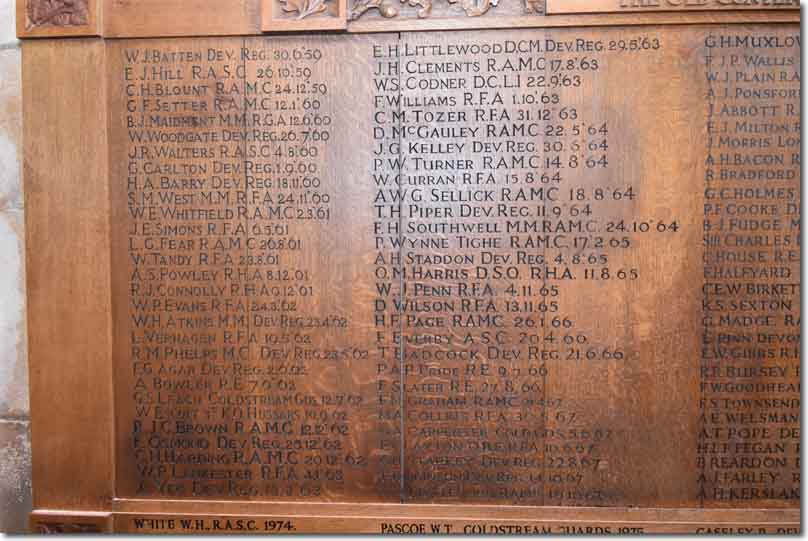 THE OLD
W.J. BATTEN DEV. REG. 30.6.'59
E.J. HILL R.A.S.C 26.10.'59
C.H. BLOUNT R.A.M.C. 24.12.'59
G.F. SETTER R.A.M.C. 12.1.'60
B.J. MAIDMENT M.M. R.G.A. 12.6.'60
W. WOODGATE DEV. REG. 26.7.'60
J.R. WALTERS R.A.S.C. 4.8.'60
G. CARLTON DEV. REG. 1.9.'60
H.A. BARRY DEV. REG. 18.11.'60
S.M. WEST M.M. R.F.A. 24.11.'60
W.E. WHITFIELD R.A.M.C. 2.3.'61
J.E. SIMONS R.F.A. 6.5.'61
L.G. FEAR R.A.M.C. 26.8.'61
W. TANDY R.F.A. 23.8.'61
A.S. POWLEY R.H.A. 8.12.'61
R.J. CONNOLLY R.H.A.
W.P. EVANS R.F.A. 24.3.'62
W.H. ATKINS M.M. DEV. REG. 23.4.'62
L. VERHAGEN R.F.A. 10.5.'62
R.M. PHELPS M.C. DEV. REG. 23.5.'62
F.G. AGAR DEV. REG. 2.6.'62
A. BOWLER R.E. 7.6.'62
G.S. LEACH COLDSTREAM GDS. 12.7.'62
HUSSARS 10.9.'62
R.J.C. BROWN R.A.M.C. 12.12.'62
E. OSMOND DEV. REG. 25.12.'62
C.H. HARDING R.A.M.C. 20.12.'62
W.P. LANKESTER R.F.A. 4.1.'63
DEV. REG.
E.H. LITTLEWOOD D.C.M. DEV. REG. 29.5.'63
J.H. CLEMENTS R.A.M.C. 17.8.'63
W.S. CODNER D.C.L.I 22.9.'63
F. WILLIAMS R.F.A. 1.10.'63
C.M. TOZER R.F.A. 31.12.'63
D. McGAULEY R.A.M.C. 22.5.'64
J.G. KELLEY DEV. REG. 30.6.'64
P.W. TURNER R.A.M.C. 14.8.'64
W. CURRAN R.F.A. 15.8.'64
A.W.G. SELLICK R.A.M.C. 18.8.'64
T.H. PIPER DEV. REG. 11.9.'64
F.H. SOUTHWELL M.M. R.A.M.C. 24.10.'64
P. WYNNE TIGHE R.A.M.C. 17.2.'65
A.H. STADDON DEV. REG. 4.8.'65
O.M. HARRIS D.S.O. R.H.A. 11.8.'65
W.J. PENN R.F.A. 4.11.'65
D. WILSON R.F.A. 13.11.'65
H.F. PAGE R.A.M.C. 26.1.'66
F. EVERBY A.S.C. 20.4.'66.
T. BADCOCK DEV. REG. 21.6.'66
R.E. 9.7.'66
F. SLATER R.E. 27.8.'66
GRAHAM R.A.M.C.
COLLINS R.F.A. 30.5.'67
CARPENTER COLD. GDS. 5.6.'67
R.F.A. 10.6.'67
DEV. REG. 22.8.'67
DEV. REG.
G.H. MUXLOW
F.J.P. WALLIS
W.J. PLAIN
A.J. PONSFORD
J. ABBOTT
E.J. MILTON
J. MORRIS
A.H. BACON
R. BRADFORD
G.C. HOLMES
P.F. COOKE
B.J. FUDGE
SIR CHARLES
C. HOUSE R.E.
F. HALFYARD
C.E.W. BIRKETT
K.S. SEXTON
G. MADGE
PINN
E.W. GIBBS
BURSEY
F.W. GOODHEAD
TOWNSEND
A.E. WELSMAN
A.T. POPE
H.L.F. FEGAN
B. REARDON
A.J. FARLEY
A.H. KERSLAKE
WHITE W.H., R.A.S.C. 1974.
PASCOE W.T. COLDSTREAM GUARDS, 1975
CASELEY B.